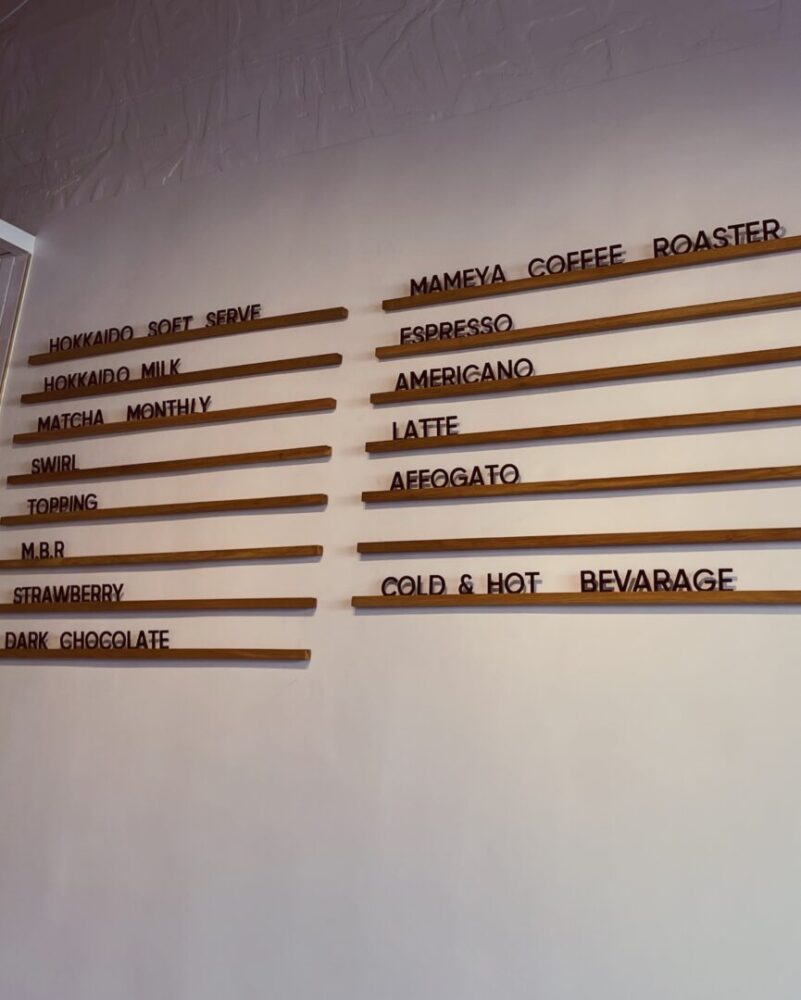 HOKKAIDO SOFT SERVE
HOKKAIDO MILK
MATCHA MONTHLY
SWIRL
TOPPING
M.B.R
STRAWBERRY
DARK CHOCOLATE
MAMEYA COFFEE ROASTER
ESPRESSO
AMERICANO
LATTE
AFFOGATO
COLD & HOT BEVARAGE